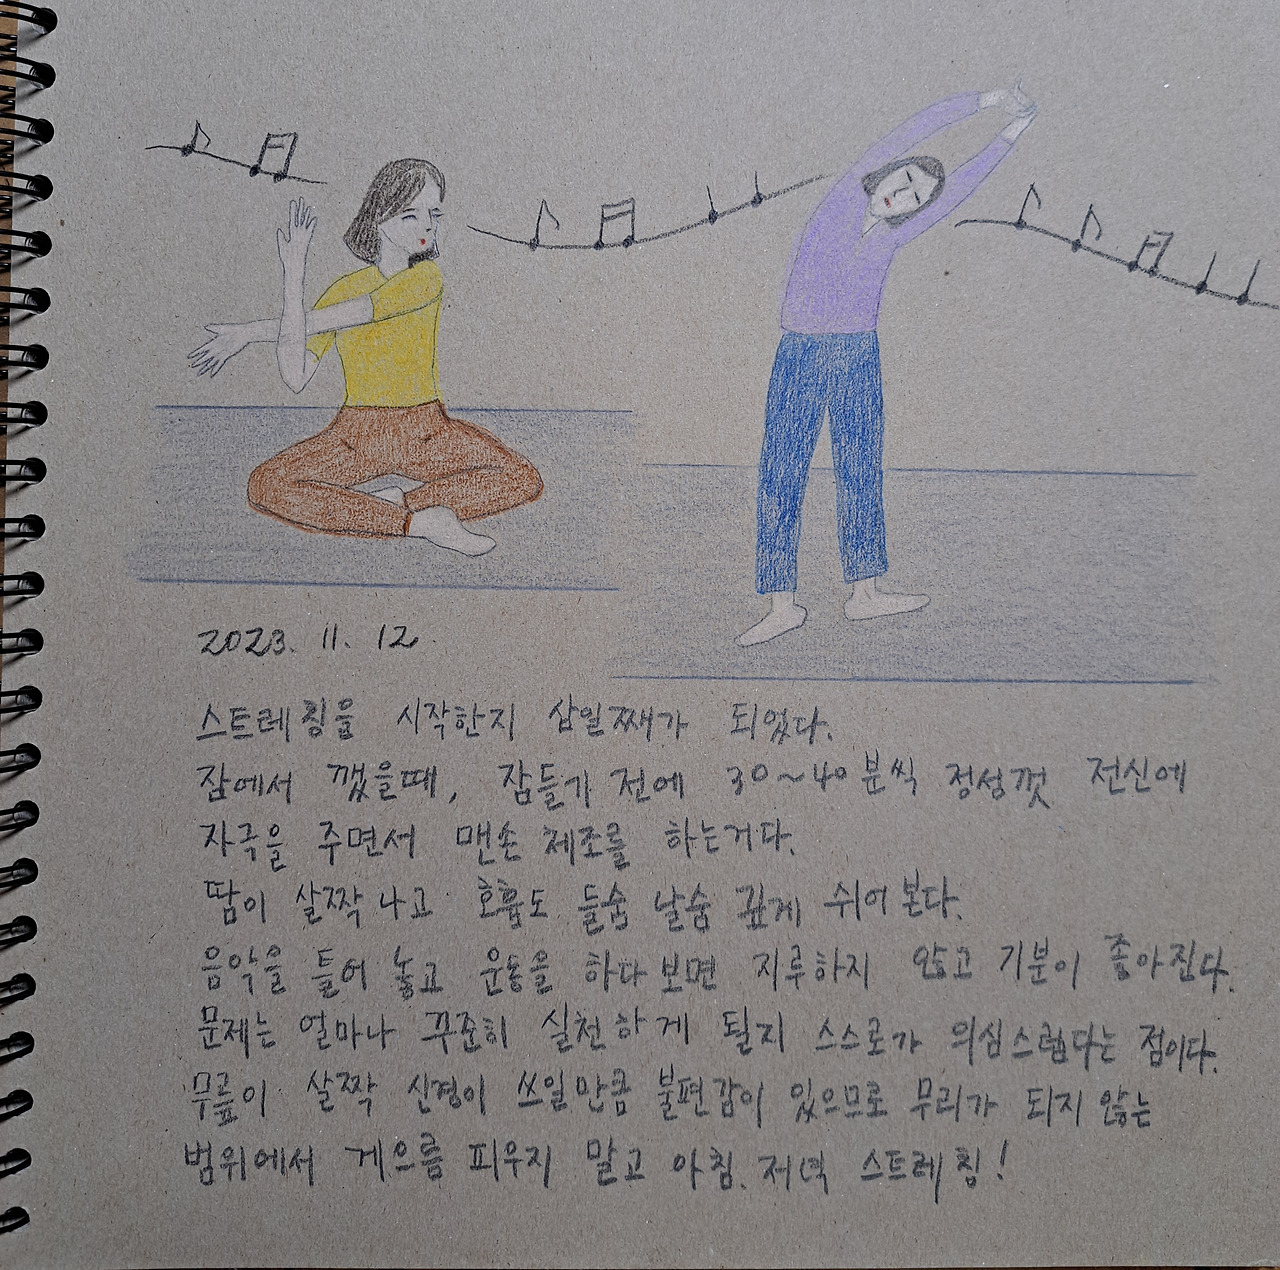 2023. 11. 12
스트레칭을 시작한지 삼일째가 되었다.
잠에서 깼을때, 잠들기 전에 30~40분씩 정성껏 전신에
자극을 주면서 맨손 체조를 하는거다.
땀이 살짝 나고 호흡도 들숨 날숨 깊게 쉬어본다.
음악을 틀어 놓고 운동을 하다보면 지루하지 않고 기분이 좋아진다.
문제는 얼마나 꾸준히 실천하게 될지 스스로가 의심스럽다는 점이다.
무릎이 살짝 신경이 쓰일만큼 불편감이 있으므로 무리가 되지 않는
범위에서 게으름 피우지 말고 아침. 저녁 스트레칭!